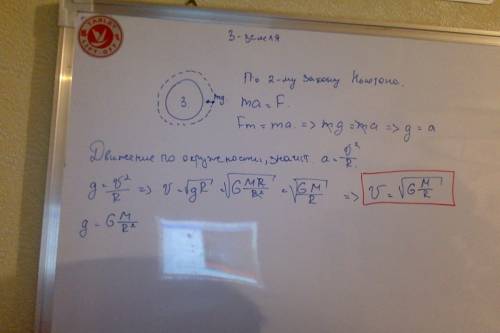 3-земля
По 2-му закону Ньютона.
3.
mg
ma = F.
Fт = ma. => mg = ma => g = a
Движение по окружности, значит a = v²/R.
g = v²/R => v = √gR = √G MR/R² = √G M/R => v = √G M/R
g = G M/R²